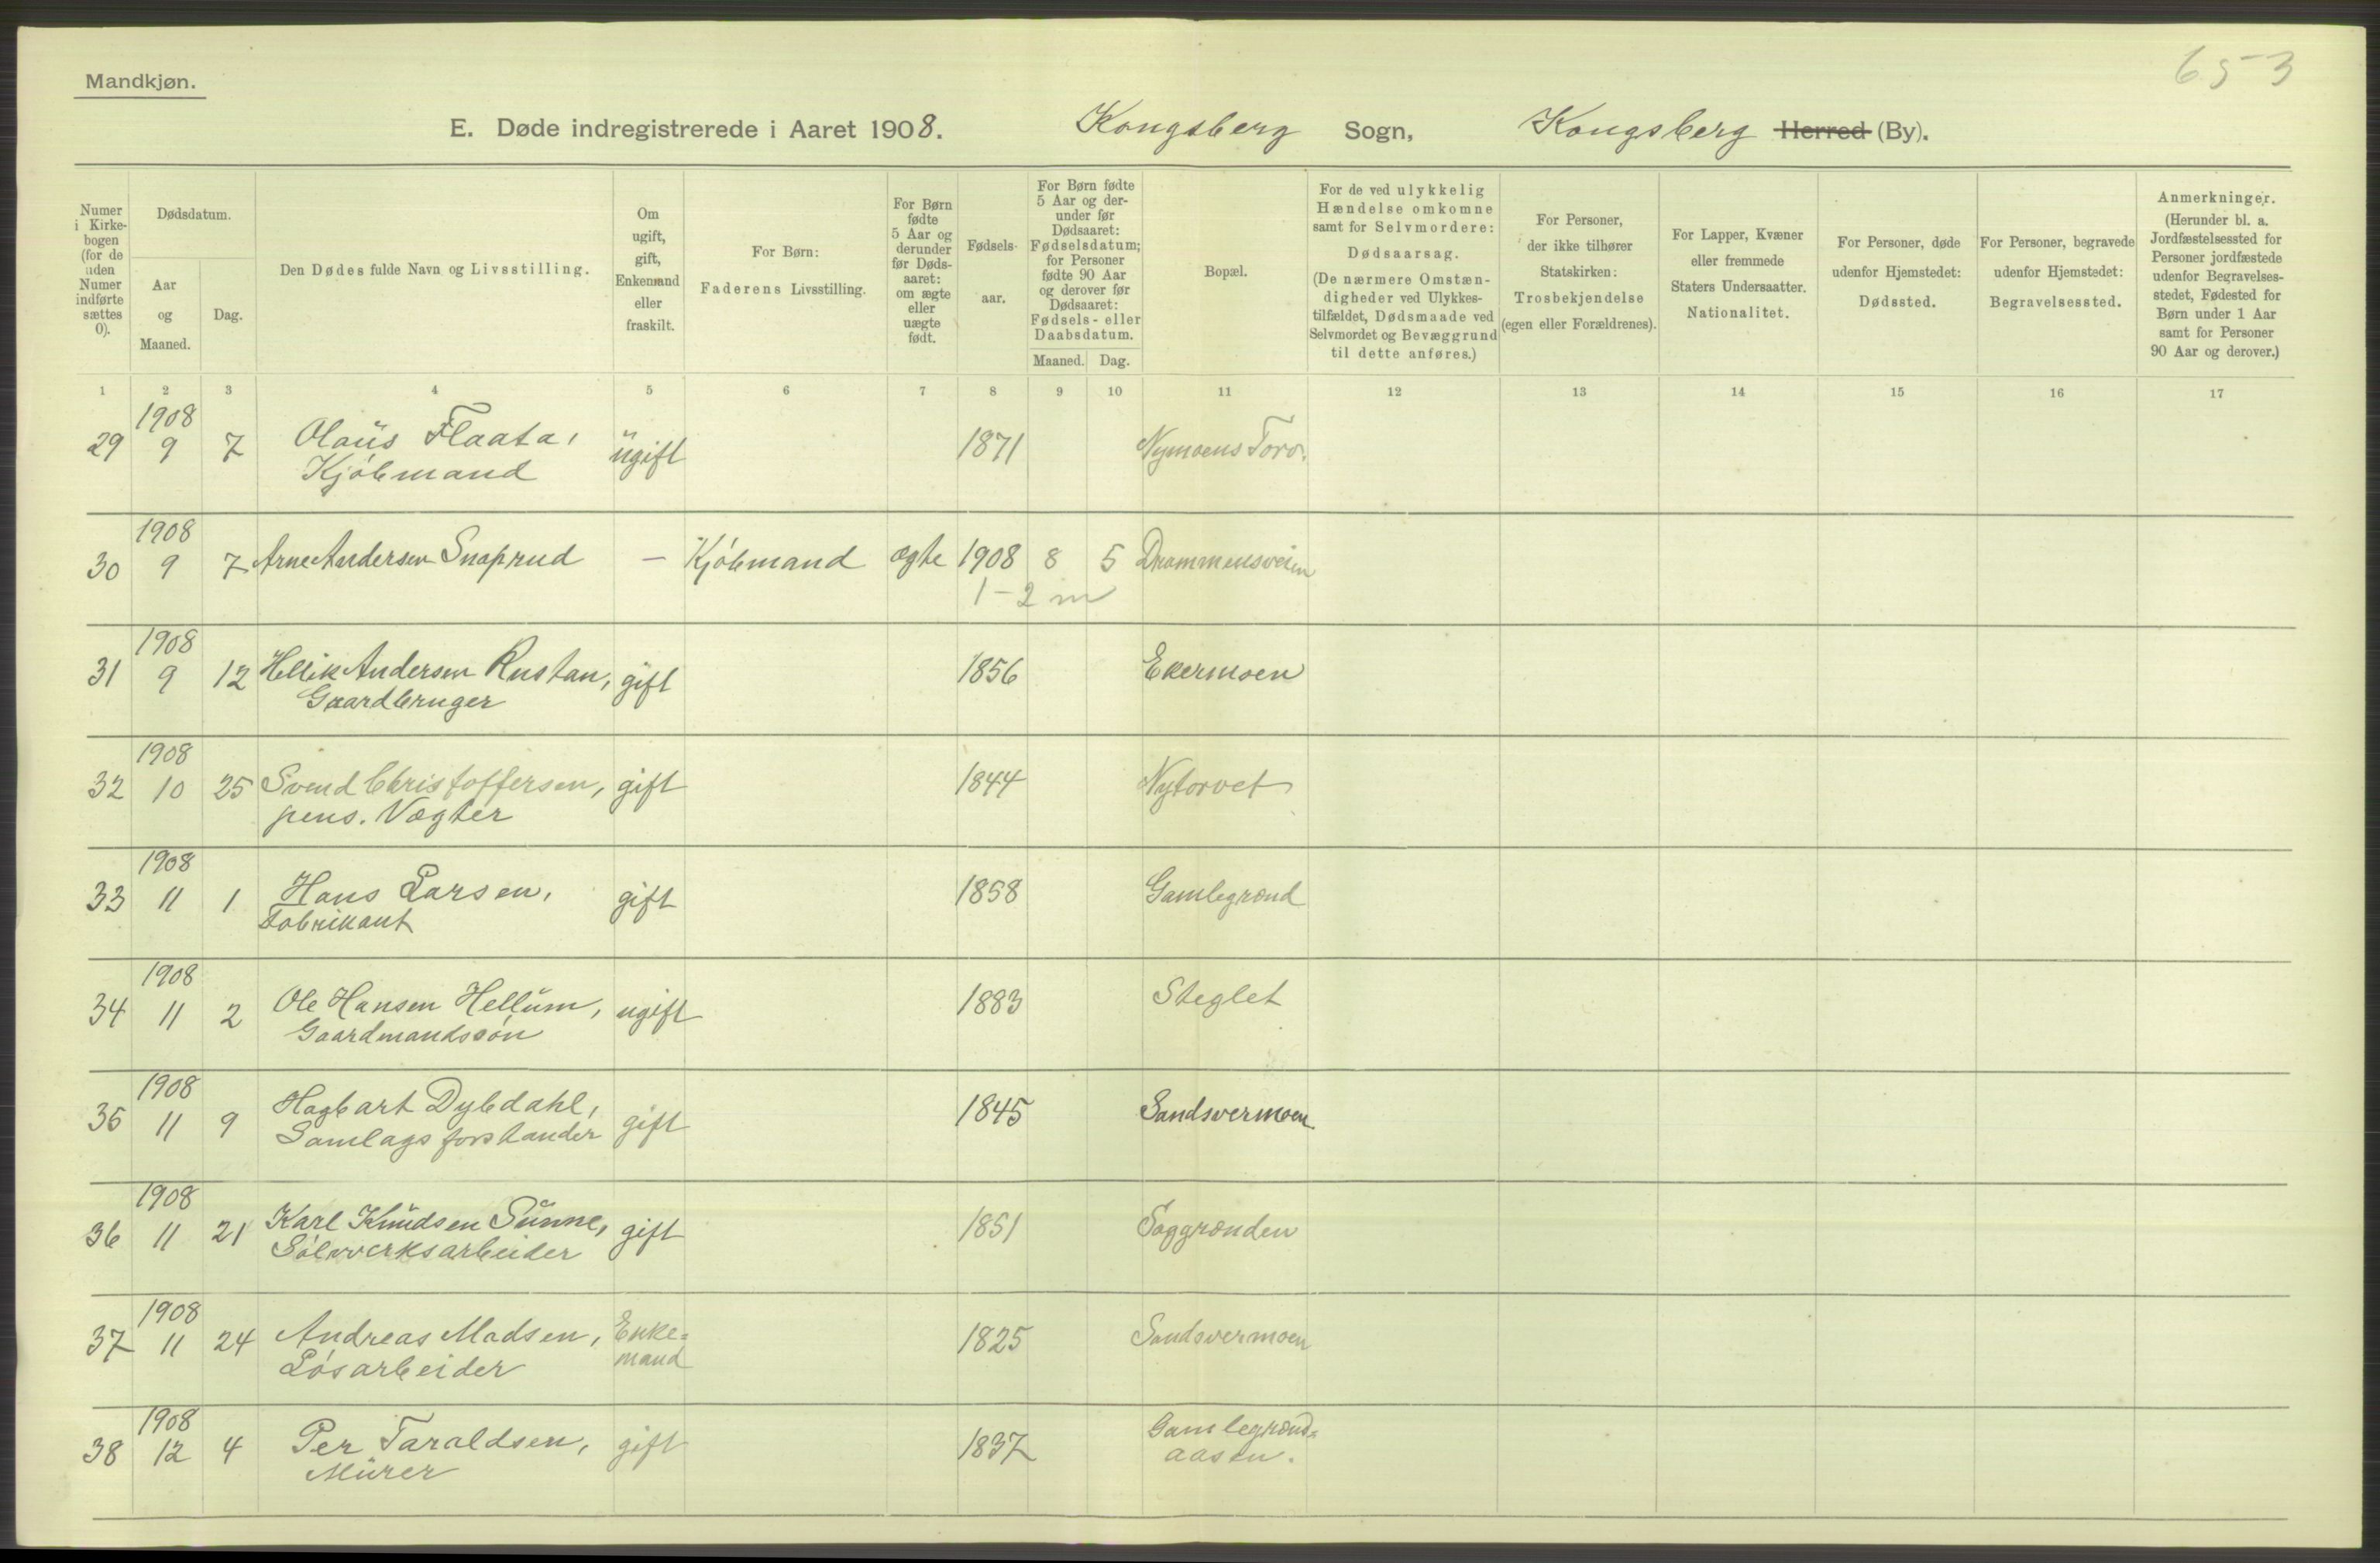 653
Mandkjøn.
E. Døde indregistrerede i Aaret 1908. Kongsberg Sogn, Kongsberg Herred (By).
Numer i Kirkebogen (for de uden Numer indførte sættes 0).
Dødsdatum.
Aar og Maaned.
Dag.
Den Dødes fulde Navn og Livsstilling.
Om ugift, gift, Enkemand eller fraskilt.
For Børn: Faderens Livsstilling.
For Børn fødte 5 Aar og derunder før Dødsaaret: om ægte eller uægte født.
Fødselsaar.
For Børn fødte 5 Aar og derunder før Dødsaaret: Fødselsdatum; for Personer fødte 90 Aar og derover før Dødsaaret: Fødsels- eller Daabsdatum.
Maaned. Dag.
Bopæl.
For de ved ulykkelig Hændelse omkomne samt for Selvmordere: Dødsaarsag. (De nærmere Omstændigheder ved Ulykkestilfældet, Dødsmaade ved Selvmordet og Bevæggrund til dette anføres.)
For Personer, der ikke tilhører Statskirken: Trosbekjendelse (egen eller Forældrenes).
For Lapper, Kvæner eller fremmede Staters Undersaatter. Nationalitet.
For Personer, døde udenfor Hjemstedet: Dødssted.
For Personer, begravede udenfor Hjemstedet: Begravelsessted.
Anmerkninger. (Herunder bl. a. Jordfæstelsessted for Personer jordfæstede udenfor Begravelsesstedet, Fødested for Børn under 1 Aar samt for Personer 90 Aar og derover.)
1 2 3 4 5 6 7 8 9 10 11 12 13 14 15 16 17
1908
29 9 7 Olaus Flaata, ugift 1871 Nymoens Torv.
Kjøbmand
1908
30 9 7 Arne Andersen Snaprud – Kjøbmand ægte 1908 8 5 Drammensveien
1–2 m
1908
31 9 12 Hellik Andersen Rustan, gift 1856 Ekermoen
Gaardbruger
1908
32 10 25 Svend Christoffersen, gift 1844 Nytorvet
pens. Vægter
1908
33 11 1 Hans Larsen, gift 1858 Gamlegrænd
Fabrikant
1908
34 11 2 Ole Hansen Hellum, ugift 1883 Steglet
Gaardmandssøn
1908
35 11 9 Hagbart Dybdahl, gift 1845 Sandsvermoen
Samlagsforstander
1908
36 11 21 Karl Knudsen Sunne, gift 1851 Saggrænden
Sølvverksarbeider
1908
37 11 24 Andreas Madsen, Enke= 1825 Sandsvermoen
Løsarbeider mand
1908
38 12 4 Per Taraldsen, gift 1837 Gamlegrænds=
Murer aasen.